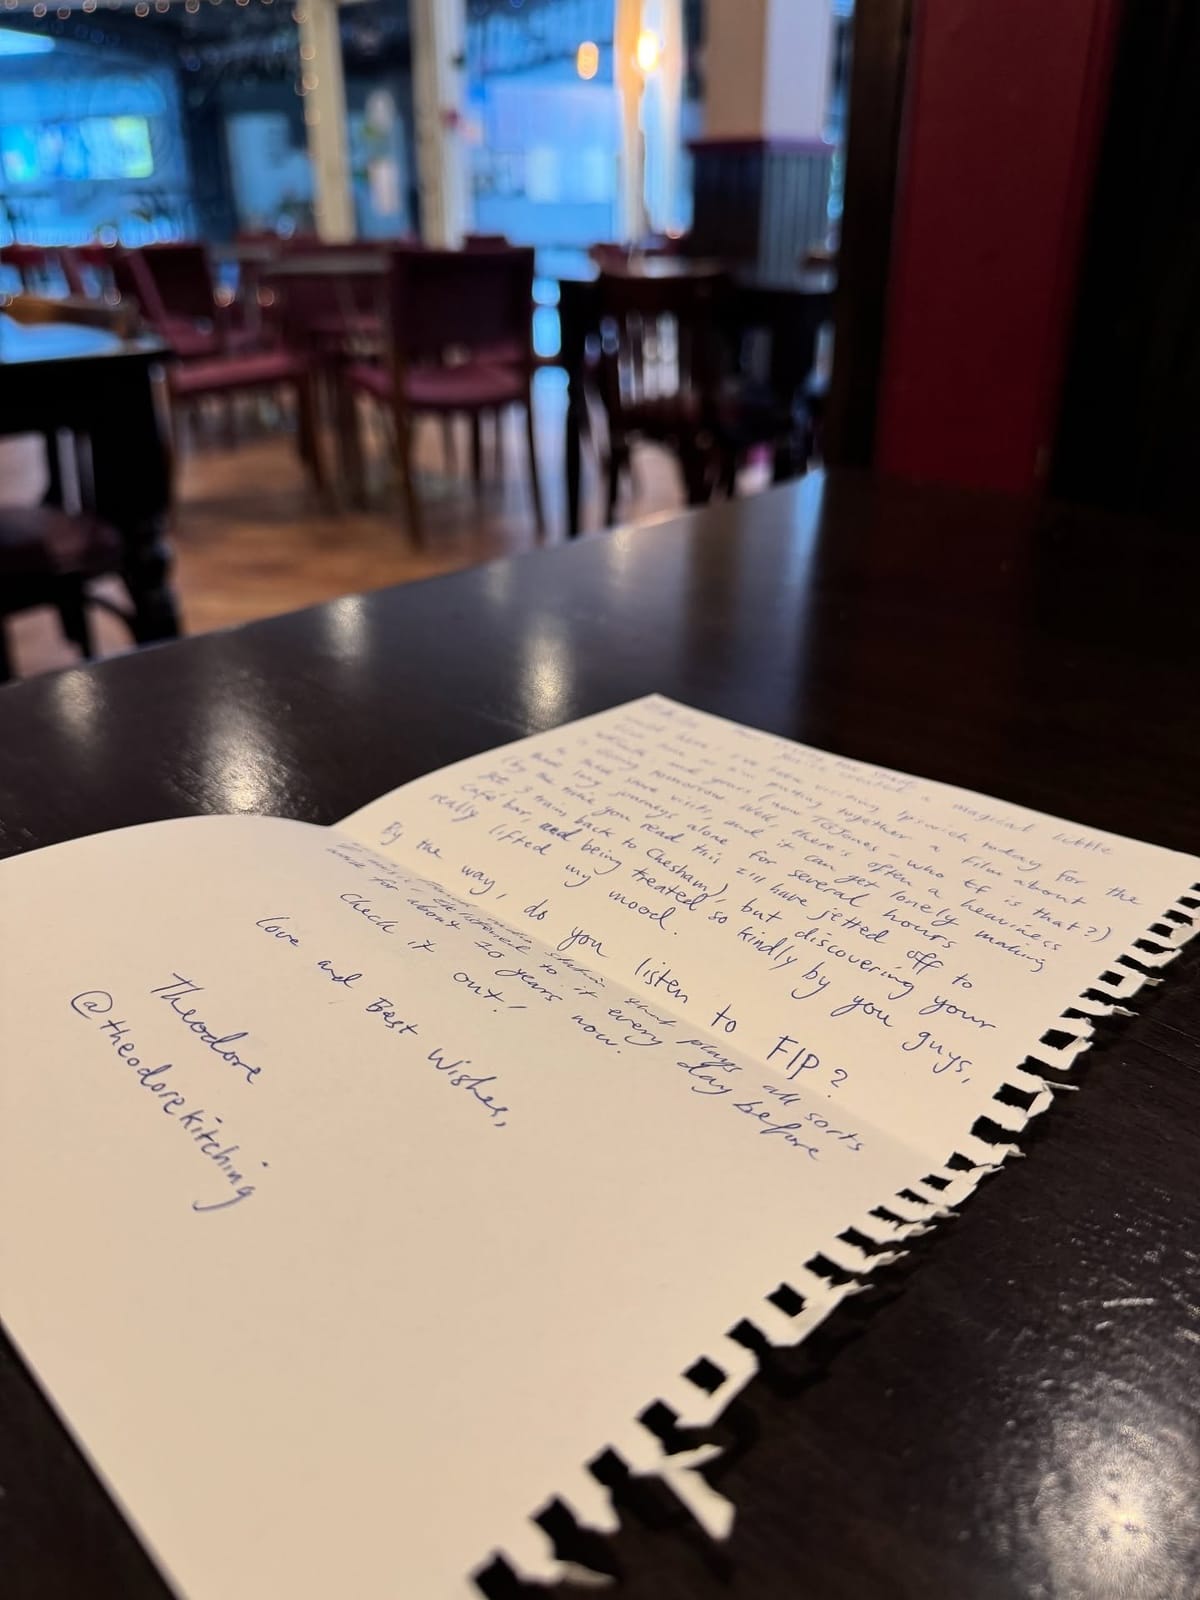 you've created a magical little
here! I've been visiting Ipswich today for the
first time as I'm putting together a film about
and years (now TGJones - who tf is that?)
is closing tomorrow. Well, there's often a heaviness
to these visits, and it can get lonely making
these long journeys alone for several hours
(by the time you read this I'll have jetted off to
get 3 trains back to Chesham), but discovering your
café bar, and being treated so kindly by you guys,
really lifted my mood.
By the way, do you listen to FIP?
radio station that plays all sorts
I've listened to it every day before
work for about 20 years now.
Check it out!
Love and Best Wishes,
Theodore
@theodorekitching